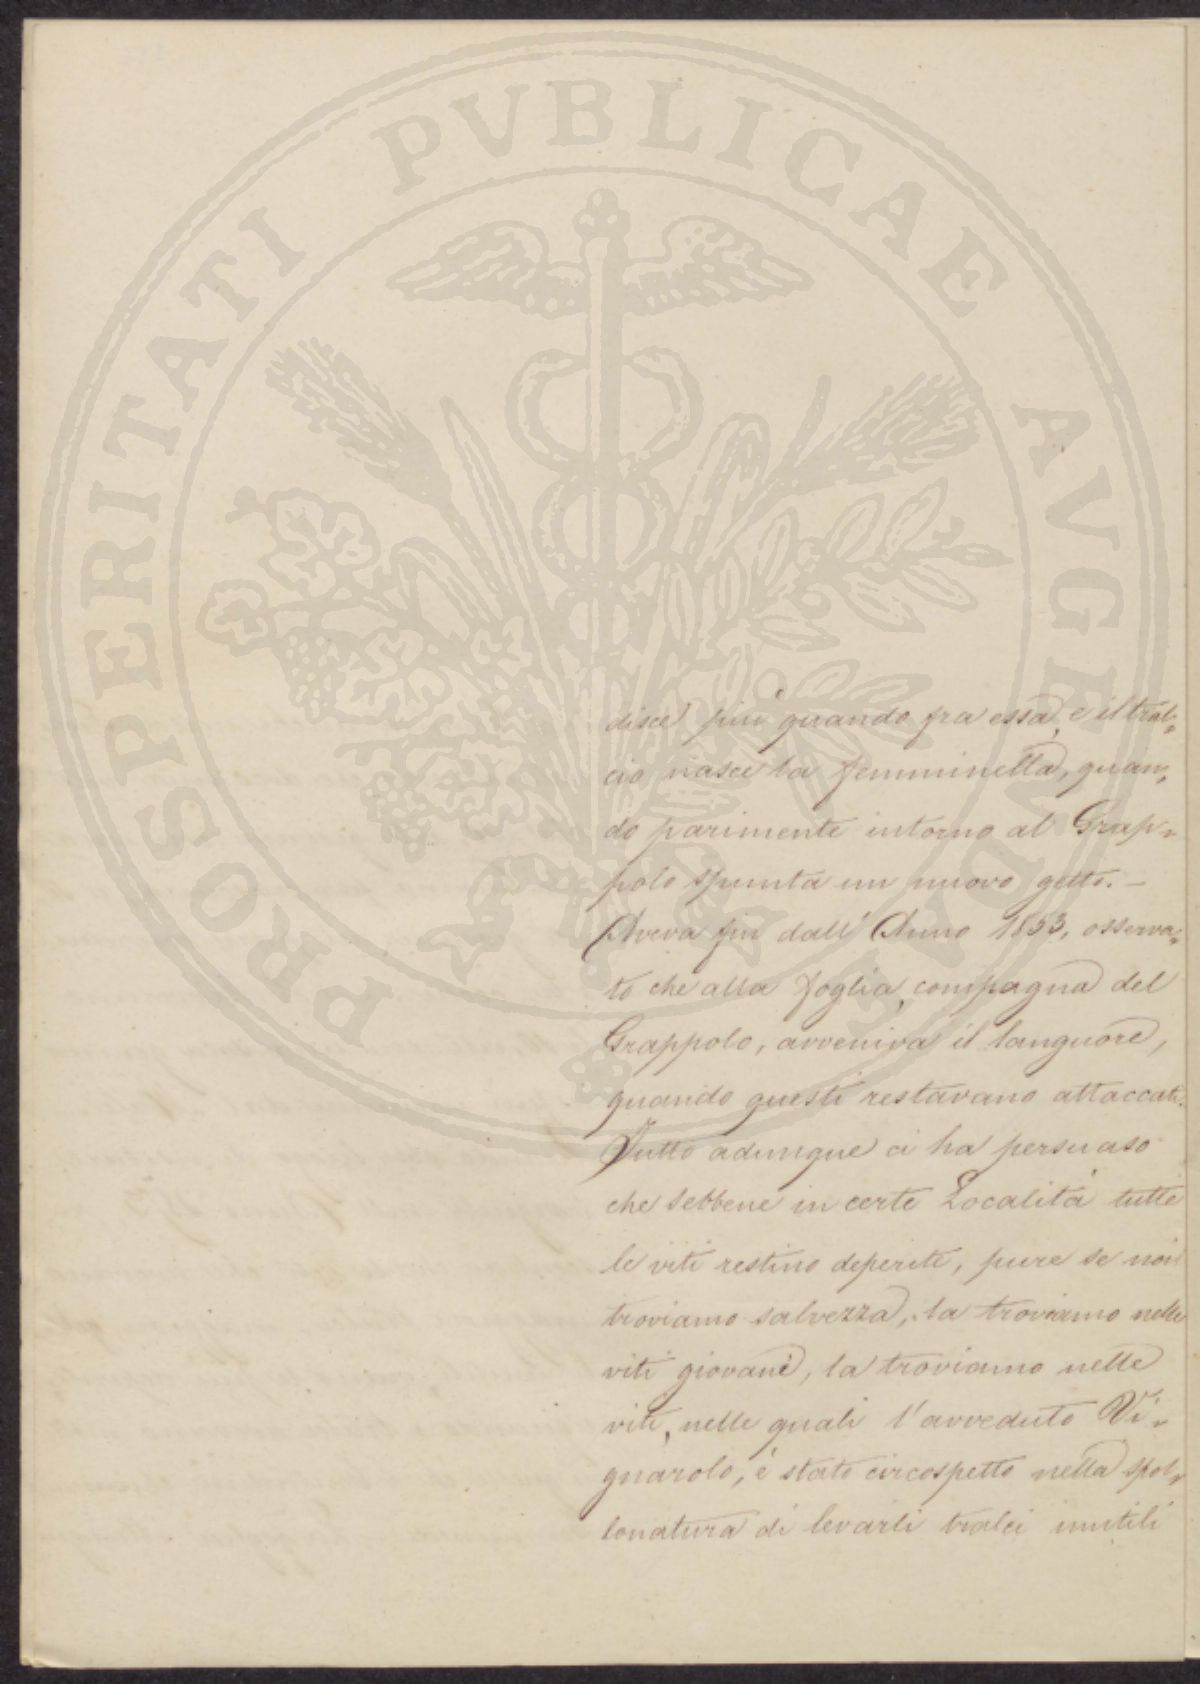 PROSPERITATI PVBLICAE AVGENDAE
disce più quando fra essa, e il tral=
cio nasce la femminella, quan=
do parimente intorno al Grap=
polo spunta un nuovo getto. –
Aveva fin dall' Anno 1853, osserva=
to che alla foglia, compagna del
Grappolo, avveniva il languore,
quando questi restavano attaccati.
Tutto adunque ci ha persuaso
che sebbene in certe Località tutte
le viti restino deperite, pure se noi
troviamo salvezza, la troviamo nelle
viti giovani, la troviamo nelle
viti, nelle quali l'avveduto Vi=
gnarolo, è stato circospetto nella spol=
lonatura di levarli tralci inutili